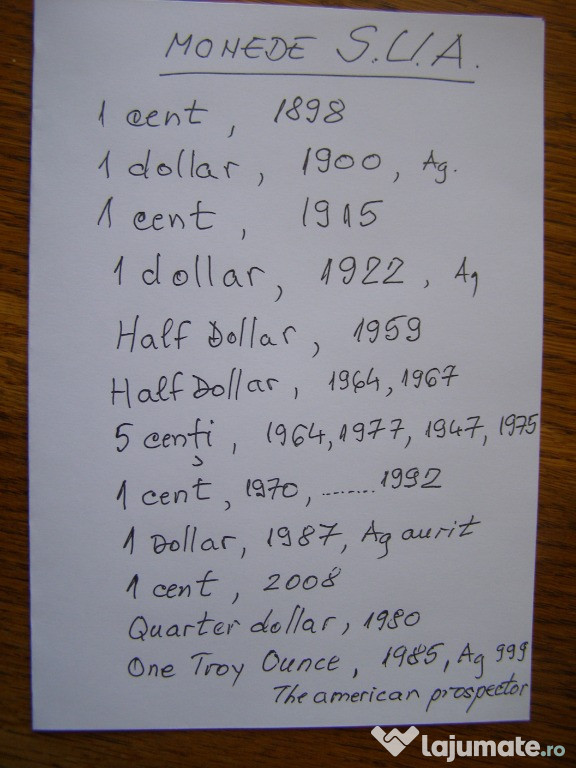 MONEDE S.U.A.
1 cent, 1898
1 dollar, 1900, Ag.
1 cent, 1915
1 dollar, 1922, Ag
Half Dollar, 1959
Half Dollar, 1964, 1967
5 cenți, 1964, 1977, 1947, 1975
1 cent, 1970, ........ 1992
1 Dollar, 1987, Ag aurit
1 cent, 2008
Quarter dollar, 1980
One Troy Ounce, 1985, Ag 999
The american prospector
lajumate.ro